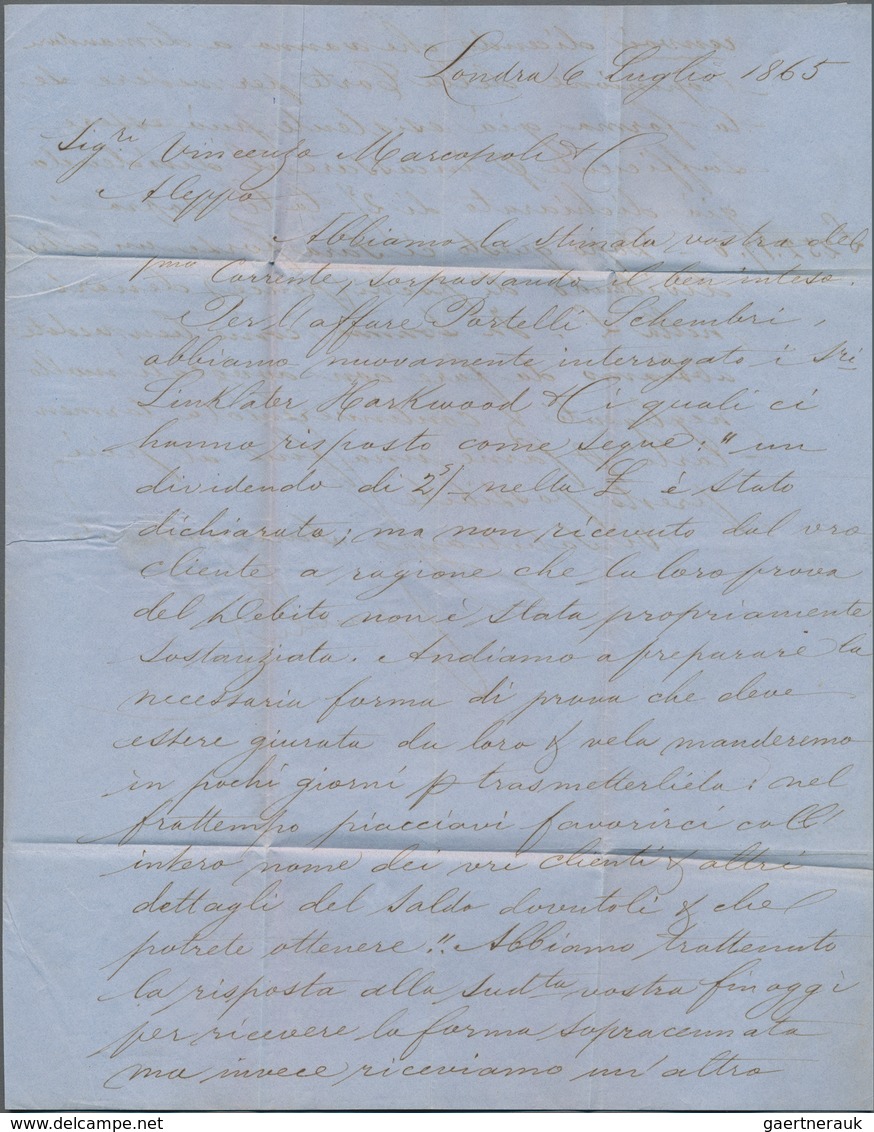 Londra 6 Luglio 1865
Sigri Vincenzo Marcopoli & C
Aleppo
Abbiamo la stimata vostra del
pmo Corrente, sorpassando il ben inteso.
Per l'affare Portelli Schembri,
abbiamo nuovamente interrogato i Sri
Linklater Hackwood & Ci quali ci
hanno risposto come segue: "un
dividendo di 2s/- nella £ é stato
dichiarato; ma non ricevuto dal vro
cliente a ragione che la loro prova
del Debito non é stata propriamente
sostanziata. Andiamo a preparare la
necessaria forma di prova che deve
essere giurata da loro & vela manderemo
in pochi giorni p trasmetterliela: nel
frattempo piacciavi favorirci coll'
intero nome dei vri clienti & altri
dettagli del saldo dovutoli & che
potrete ottenere". Abbiamo trattenuto
la risposta alla sudta vostra fin oggi
per ricevere la forma sopracennata
ma invece riceviamo un'altra
gaertnerauk